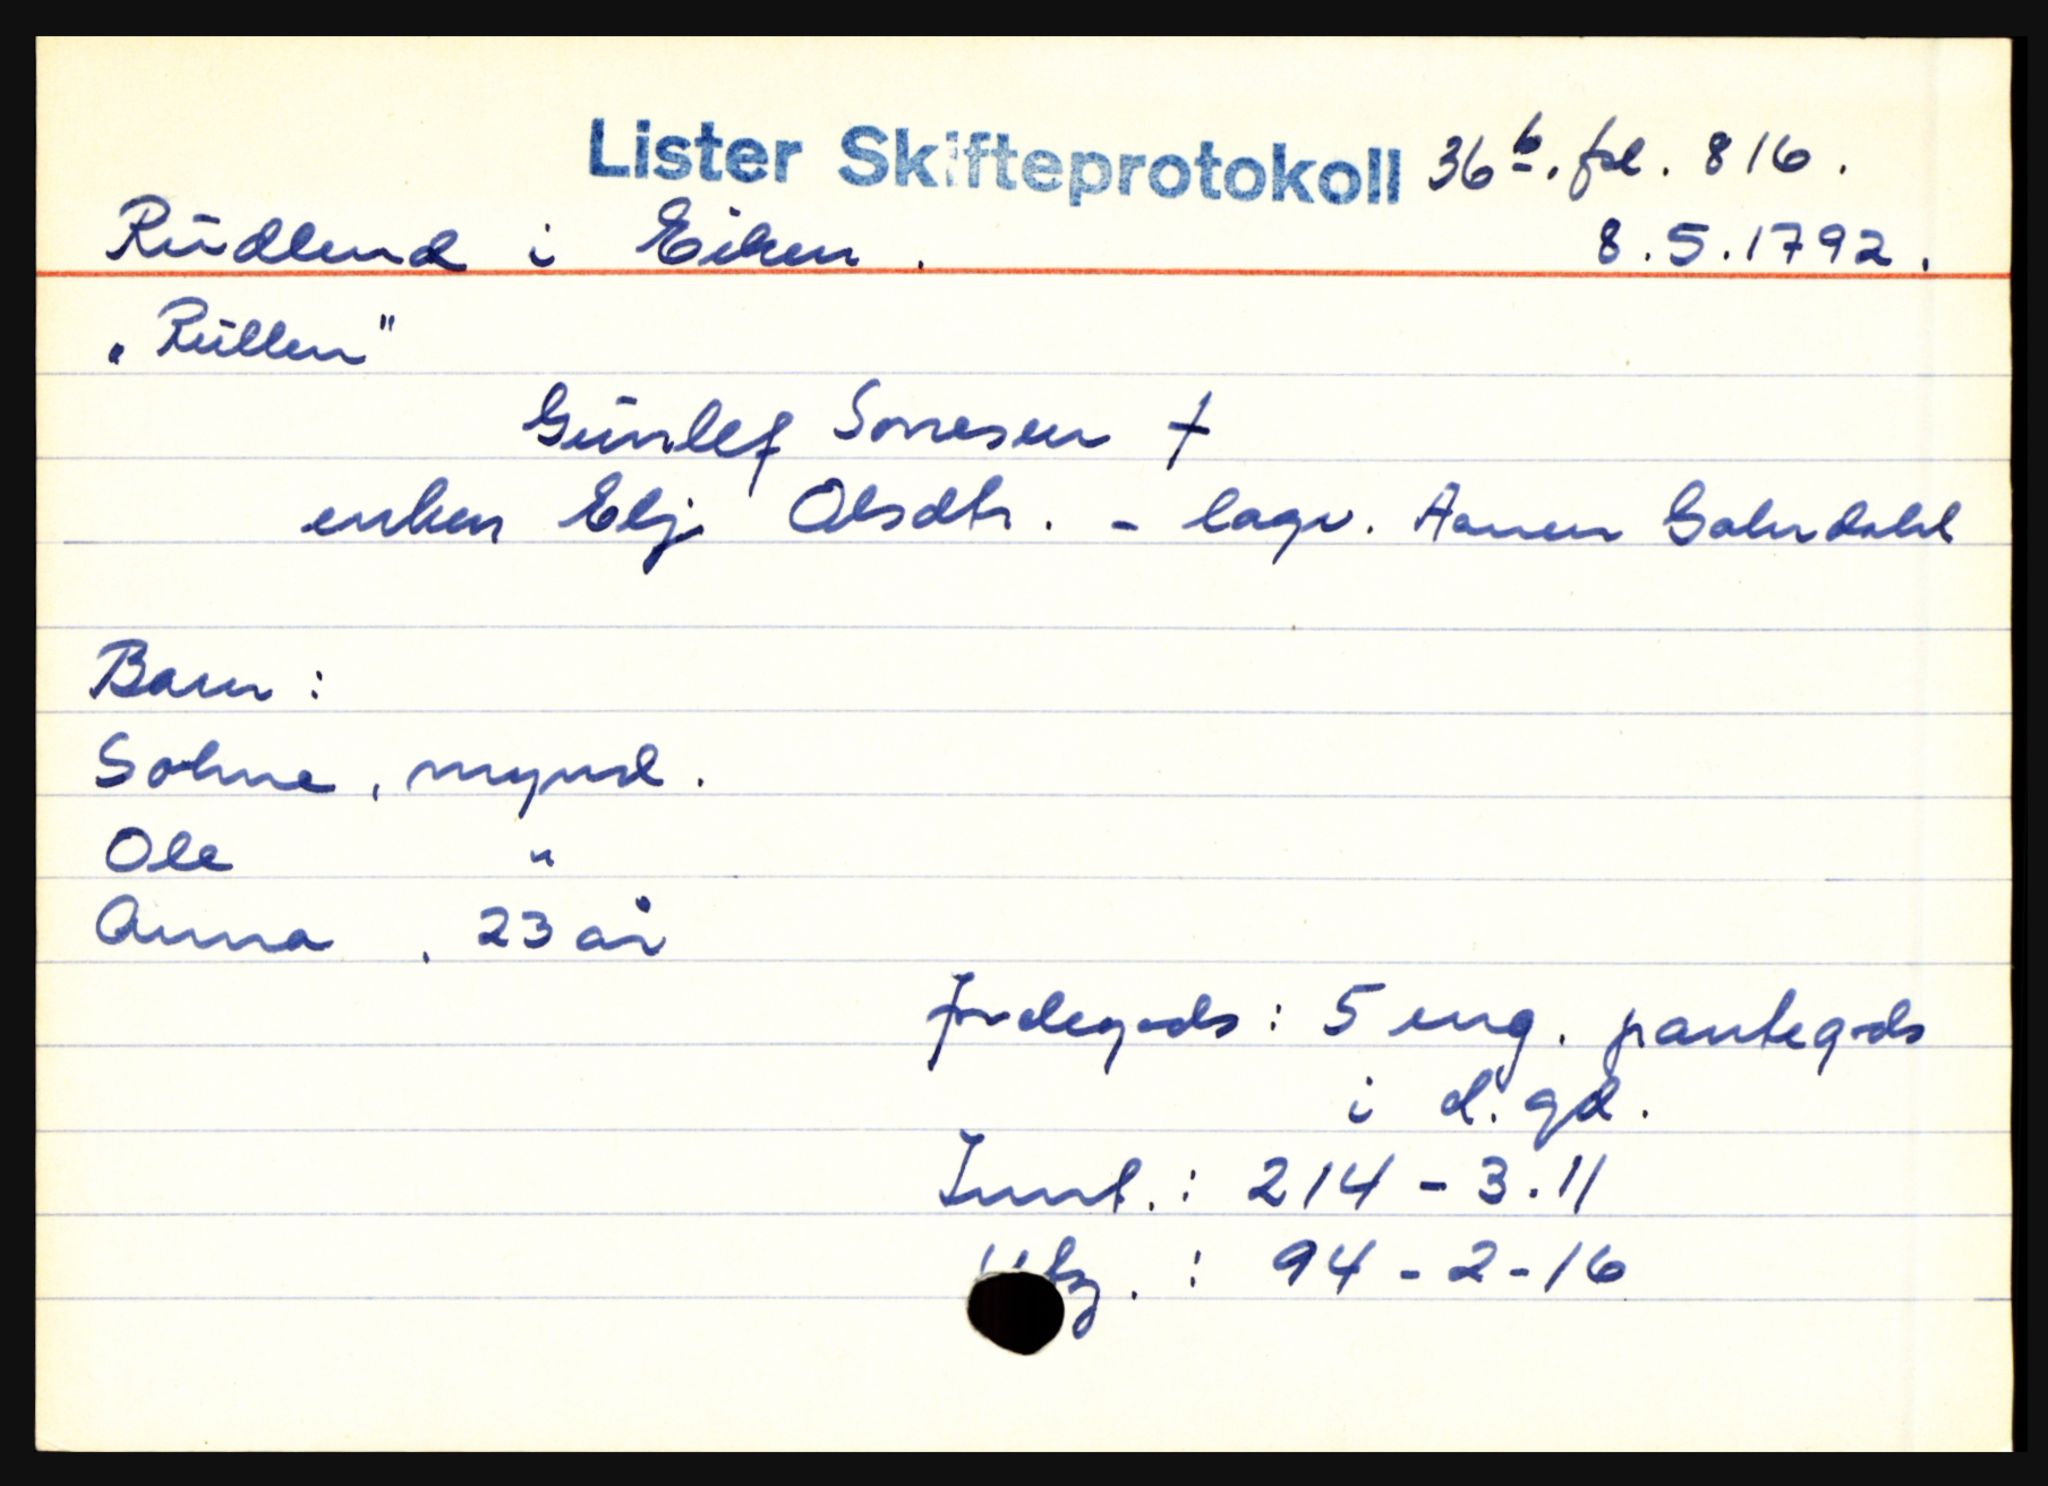 Lister Skifteprotokoll 36 b. fol. 816.
Rudland i Eiken. 8.5.1792.
"Rullen"
Gunlef Sørresen †
enken Eli Olsdtr. - lagv. Aanen Galsdahl
Barn:
Solme, mynd.
Ole "
Anna, 23 år
Jordegods: 5 eng. pantegods
i d. gd.
Innt.: 214 - 3.11
Utg.: 94 - 2 - 16